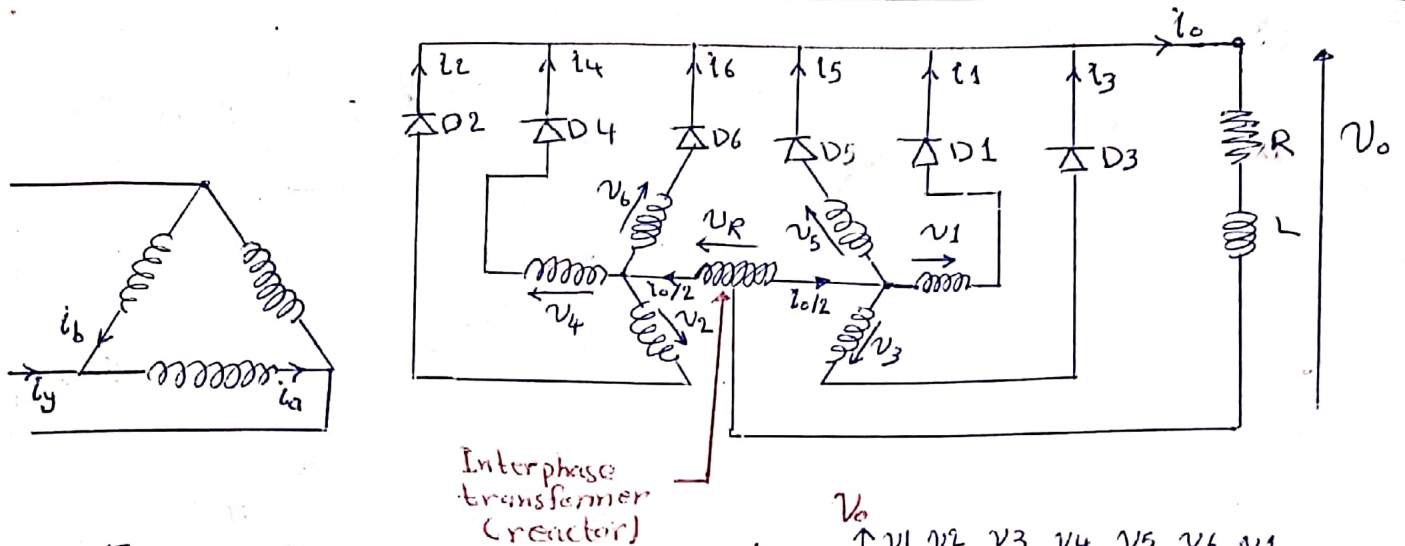 i0
i2 i4 i6 i5 i1 i3
D2 D4 D6 D5 D1 D3
R
v0
v6 vR v5 v1
L
i0/2 i0/2
v4 v2 v3
ib
iy ia
Interphase
transformer
(reactor)
v0
v1 v2 v3 v4 v5 v6 v1